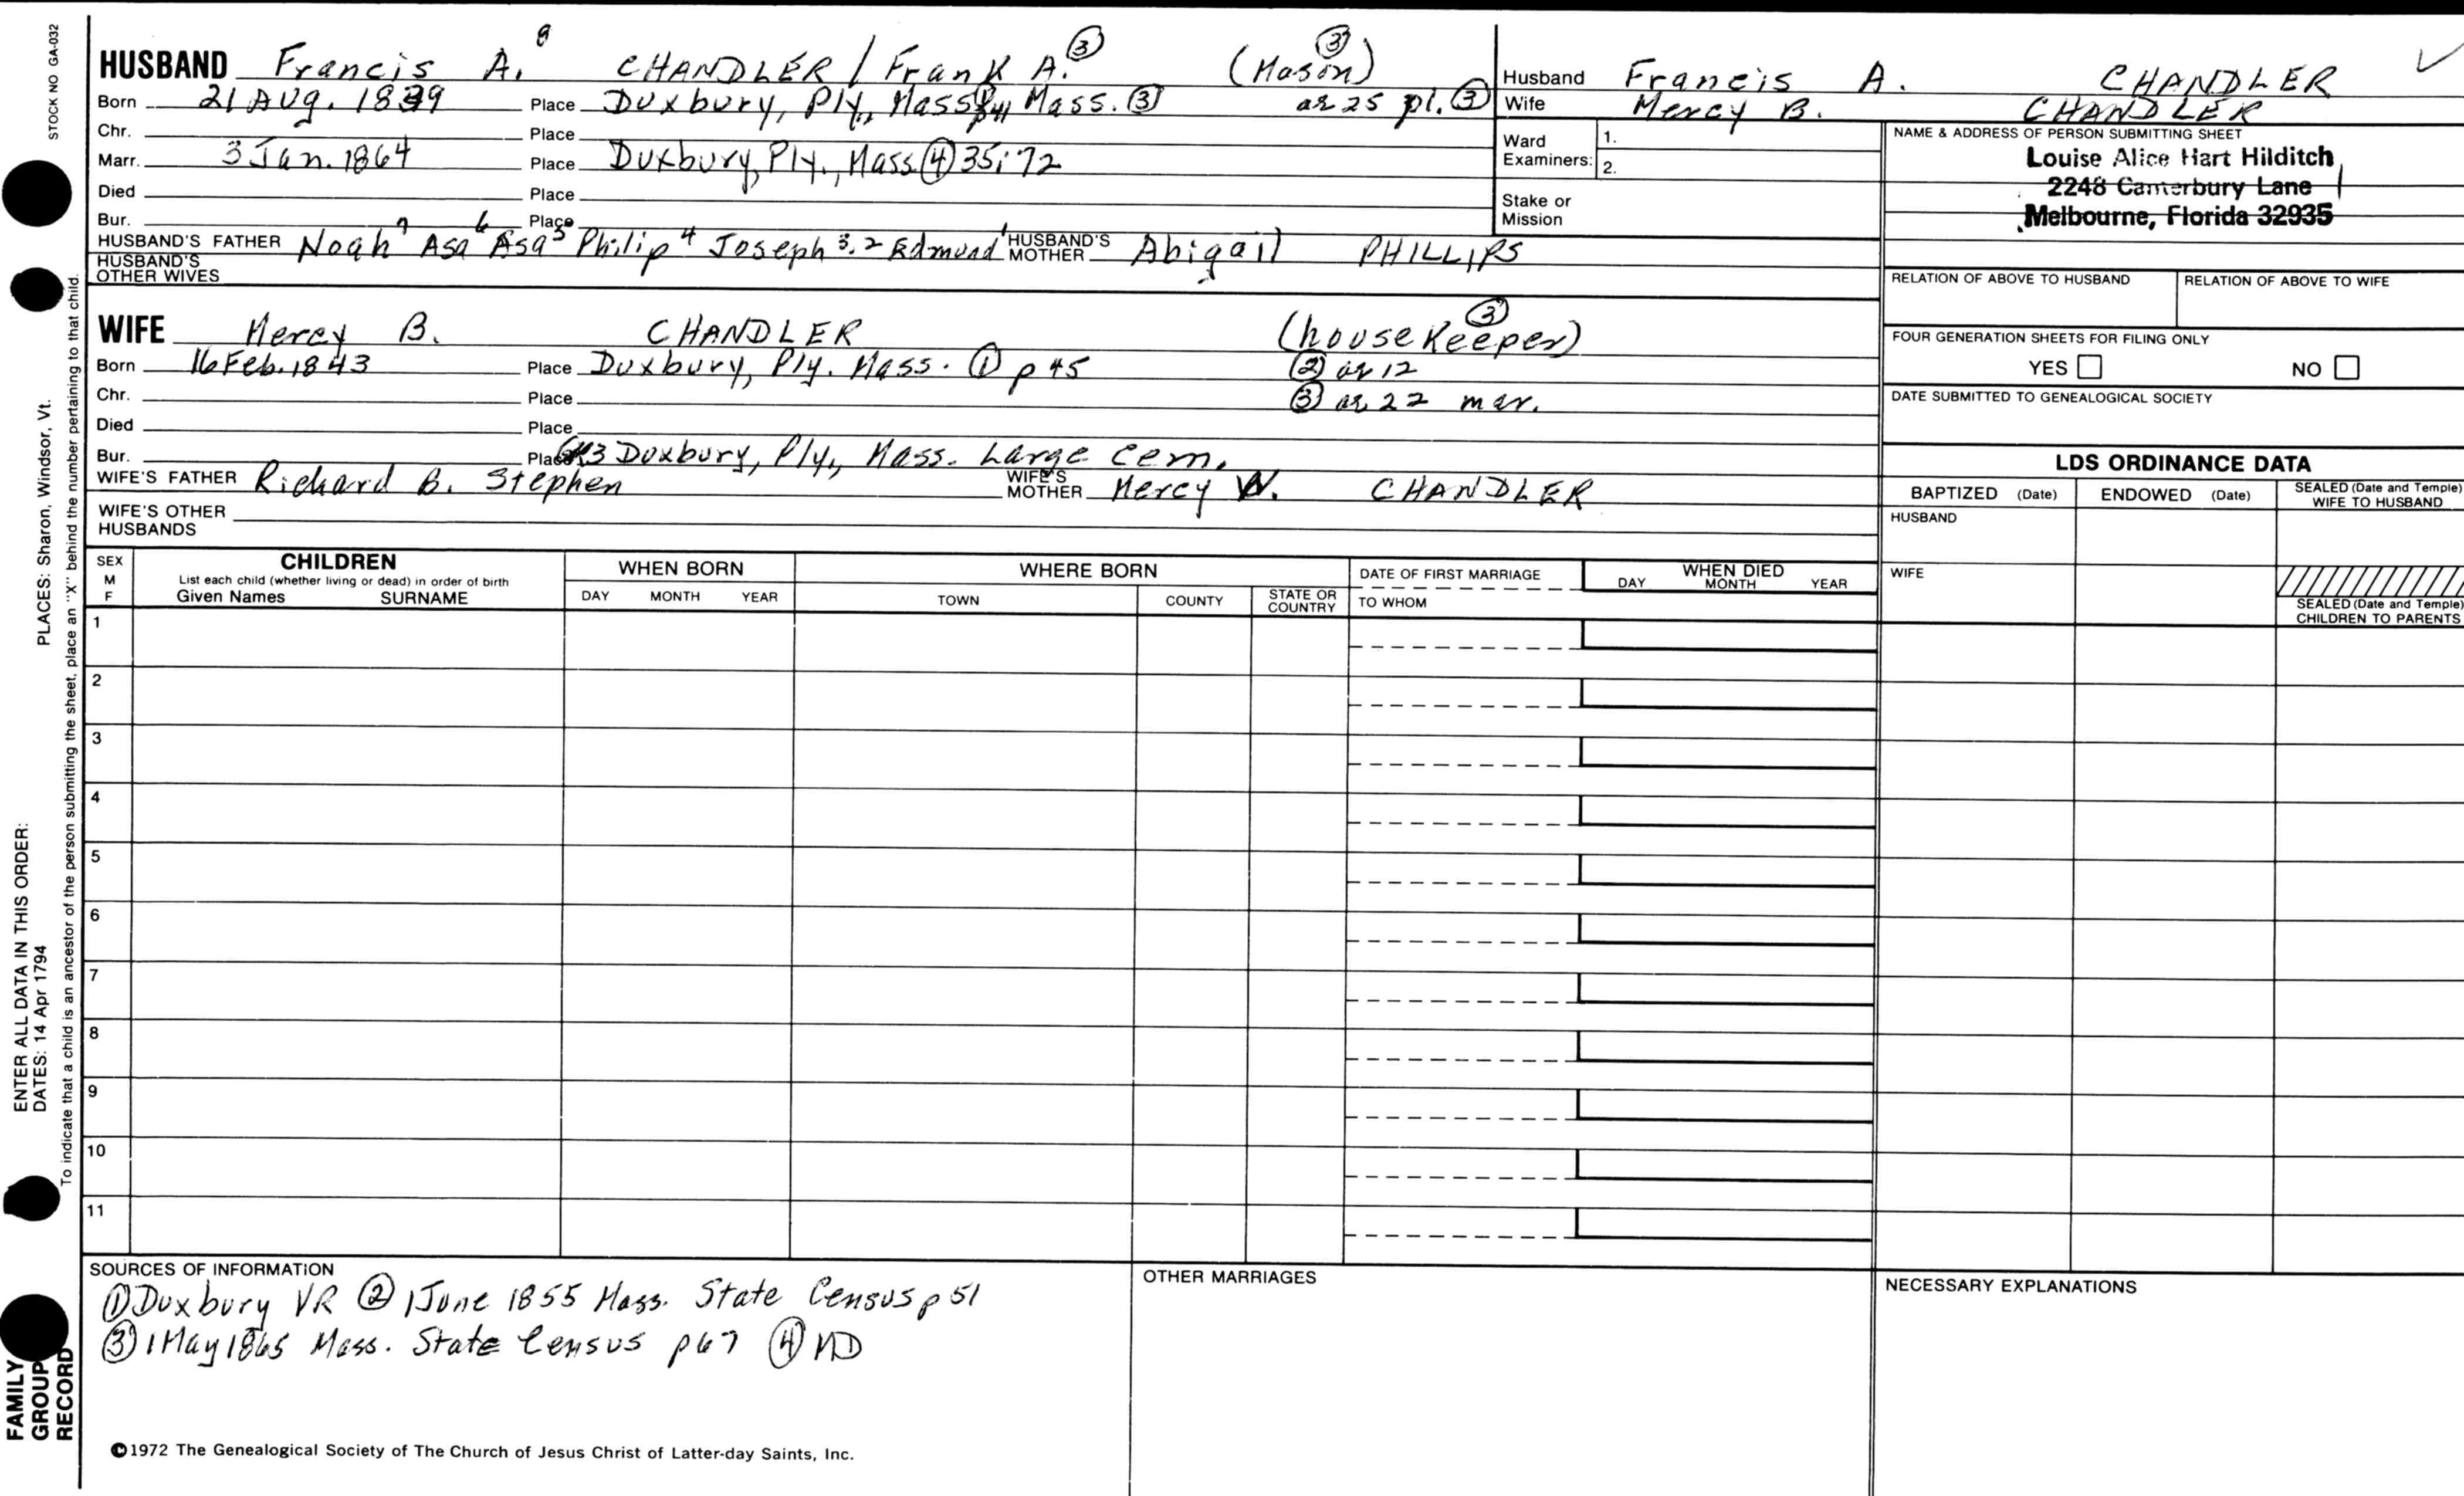 STOCK NO GA-032
HUSBAND Francis A. 8 CHANDLER / Frank A. ③ (Mason) ③
Born 21 Aug. 1839 Place Duxbury, Ply., Mass. Mass. ③ ae 25 pl. ③
Chr. Place
Marr. 3 Jan. 1864 Place Duxbury, Ply., Mass ④ 35:72
Died Place
Bur. Place
HUSBAND'S FATHER Noah 7 Asa 6 Asa 5 Philip 4 Joseph 3,2 Edmund 1 HUSBAND'S MOTHER Abigail PHILLIPS
HUSBAND'S OTHER WIVES
WIFE Mercy B. CHANDLER (housekeeper) ③
Born 16 Feb. 1843 Place Duxbury, Ply. Mass. ① p 45 ② ae 12
Chr. Place ③ ae 22 mar.
Died Place
Bur. Place GR3 Duxbury, Ply., Mass. Large Cem.
WIFE'S FATHER Richard B. Stephen WIFE'S MOTHER Mercy W. CHANDLER
WIFE'S OTHER HUSBANDS
Husband Francis A. CHANDLER
Wife Mercy B. CHANDLER
Ward Examiners: 1.
2.
Stake or Mission
NAME & ADDRESS OF PERSON SUBMITTING SHEET
Louise Alice Hart Hilditch
2248 Canterbury Lane
Melbourne, Florida 32935
RELATION OF ABOVE TO HUSBAND RELATION OF ABOVE TO WIFE
FOUR GENERATION SHEETS FOR FILING ONLY
YES NO
DATE SUBMITTED TO GENEALOGICAL SOCIETY
LDS ORDINANCE DATA
BAPTIZED (Date) ENDOWED (Date) SEALED (Date and Temple) WIFE TO HUSBAND
HUSBAND
WIFE
SEALED (Date and Temple) CHILDREN TO PARENTS
SEX M F
CHILDREN
List each child (whether living or dead) in order of birth
Given Names SURNAME
WHEN BORN
DAY MONTH YEAR
WHERE BORN
TOWN COUNTY STATE OR COUNTRY
DATE OF FIRST MARRIAGE
TO WHOM
WHEN DIED
DAY MONTH YEAR
1
2
3
4
5
6
7
8
9
10
11
SOURCES OF INFORMATION
① Duxbury VR ② 1 June 1855 Mass. State Census p 51
③ 1 May 1865 Mass. State Census p 67 ④ MD
OTHER MARRIAGES
NECESSARY EXPLANATIONS
©1972 The Genealogical Society of The Church of Jesus Christ of Latter-day Saints, Inc.
PLACES: Sharon, Windsor, Vt.
ENTER ALL DATA IN THIS ORDER:
DATES: 14 Apr 1794
To indicate that a child is an ancestor of the person submitting the sheet, place an "X" behind the number pertaining to that child.
FAMILY
GROUP
RECORD